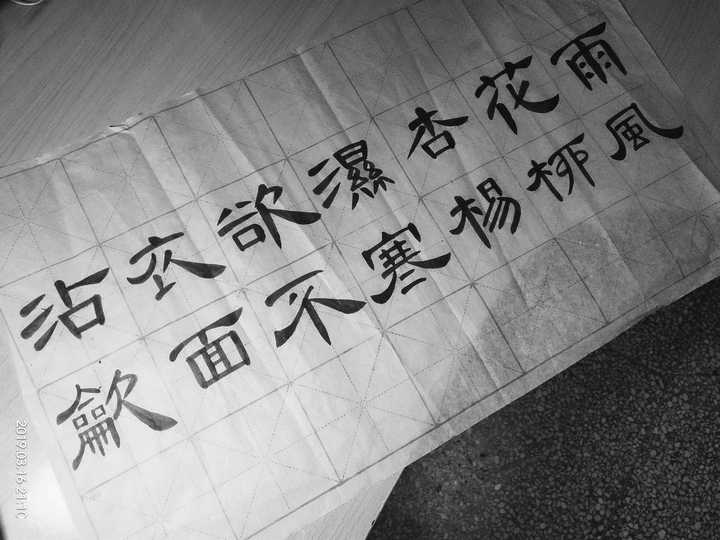 沾衣欲濕杏花雨
龡面不寒楊柳風
2019.03.16 21:10